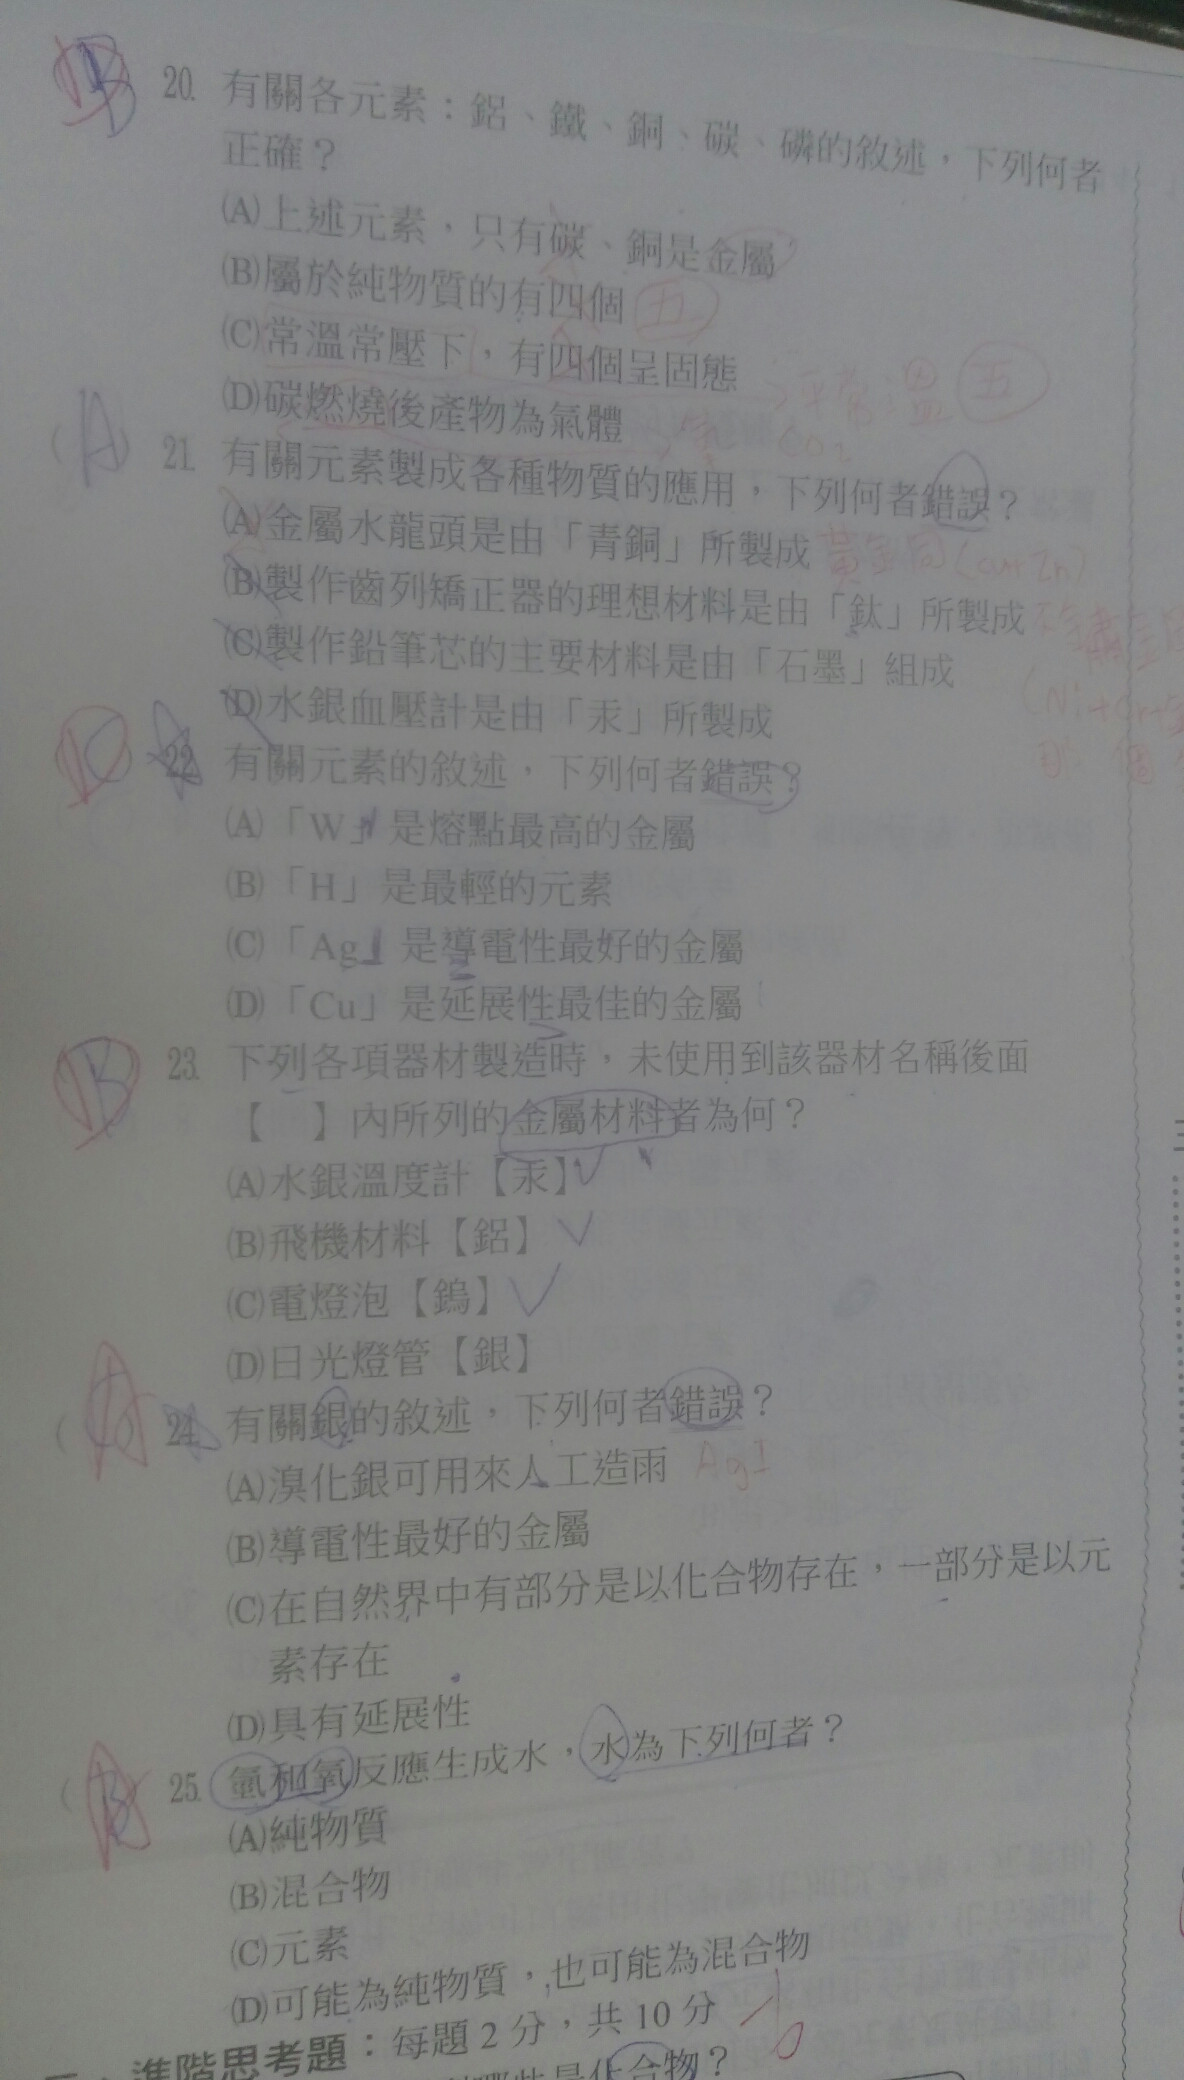 20. 有關各元素：鋁、鐵、銅、碳、磷的敘述，下列何者
正確？
(A)上述元素，只有碳、銅是金屬
(B)屬於純物質的有四個 五
(C)常溫常壓下，有四個呈固態
(D)碳燃燒後產物為氣體 CO₂ 五
(A) 21. 有關元素製成各種物質的應用，下列何者錯誤？
(A)金屬水龍頭是由「青銅」所製成
(B)製作齒列矯正器的理想材料是由「鈦」所製成
(C)製作鉛筆芯的主要材料是由「石墨」組成
(D)水銀血壓計是由「汞」所製成
22. 有關元素的敘述，下列何者錯誤？
(A)「W」是熔點最高的金屬
(B)「H」是最輕的元素
(C)「Ag」是導電性最好的金屬
(D)「Cu」是延展性最佳的金屬
23. 下列各項器材製造時，未使用到該器材名稱後面
【 】內所列的金屬材料者為何？
(A)水銀溫度計【汞】
(B)飛機材料【鋁】
(C)電燈泡【鎢】
(D)日光燈管【銀】
24. 有關銀的敘述，下列何者錯誤？
(A)溴化銀可用來人工造雨 AgI
(B)導電性最好的金屬
(C)在自然界中有部分是以化合物存在，一部分是以元
素存在
(D)具有延展性
25. 氫和氧反應生成水，水為下列何者？
(A)純物質
(B)混合物
(C)元素
(D)可能為純物質，也可能為混合物
進階思考題：每題2分，共10分
化合物？